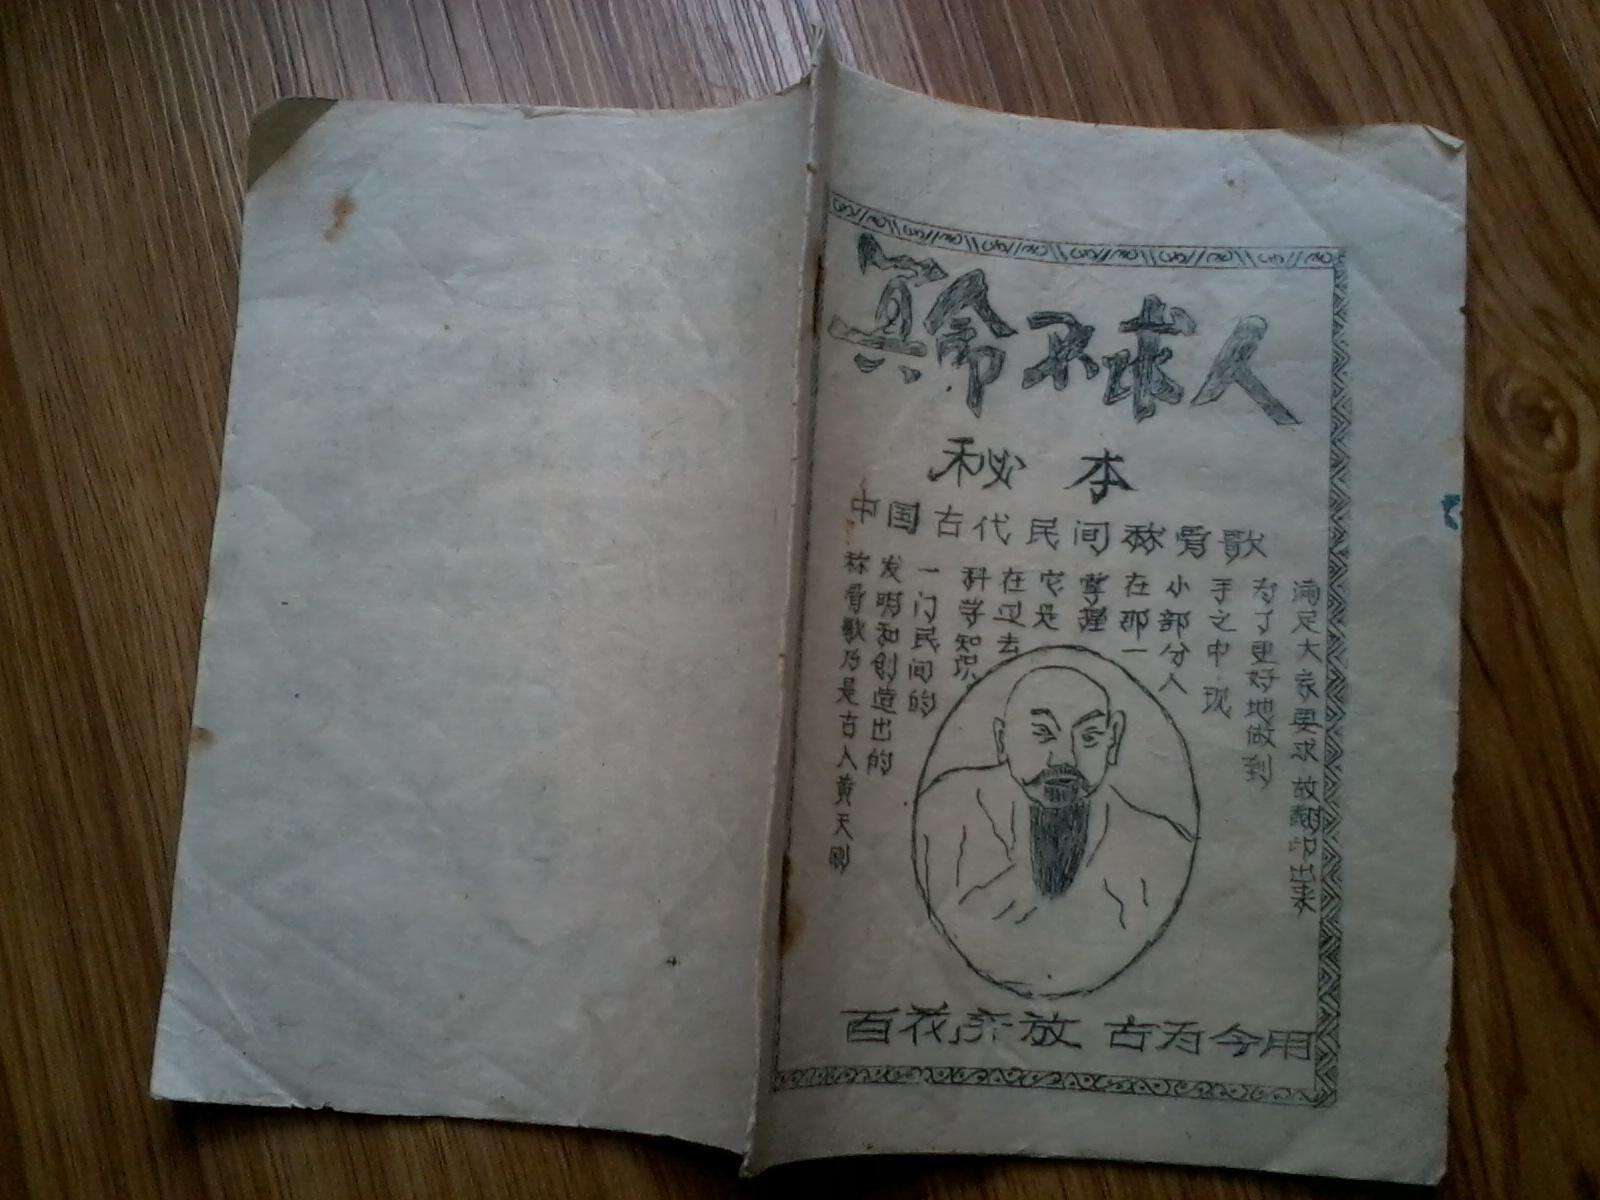 真命不求人
秘本
中国古代民间称骨歌
称骨歌乃是古人黄天刚
发明和创造出的
一门民间的
科学知识
在过去
它是
掌握
在那一
小部分人
手之中.现
为了更好地做到
满足大家要求故翻印出来
百花齐放 古为今用